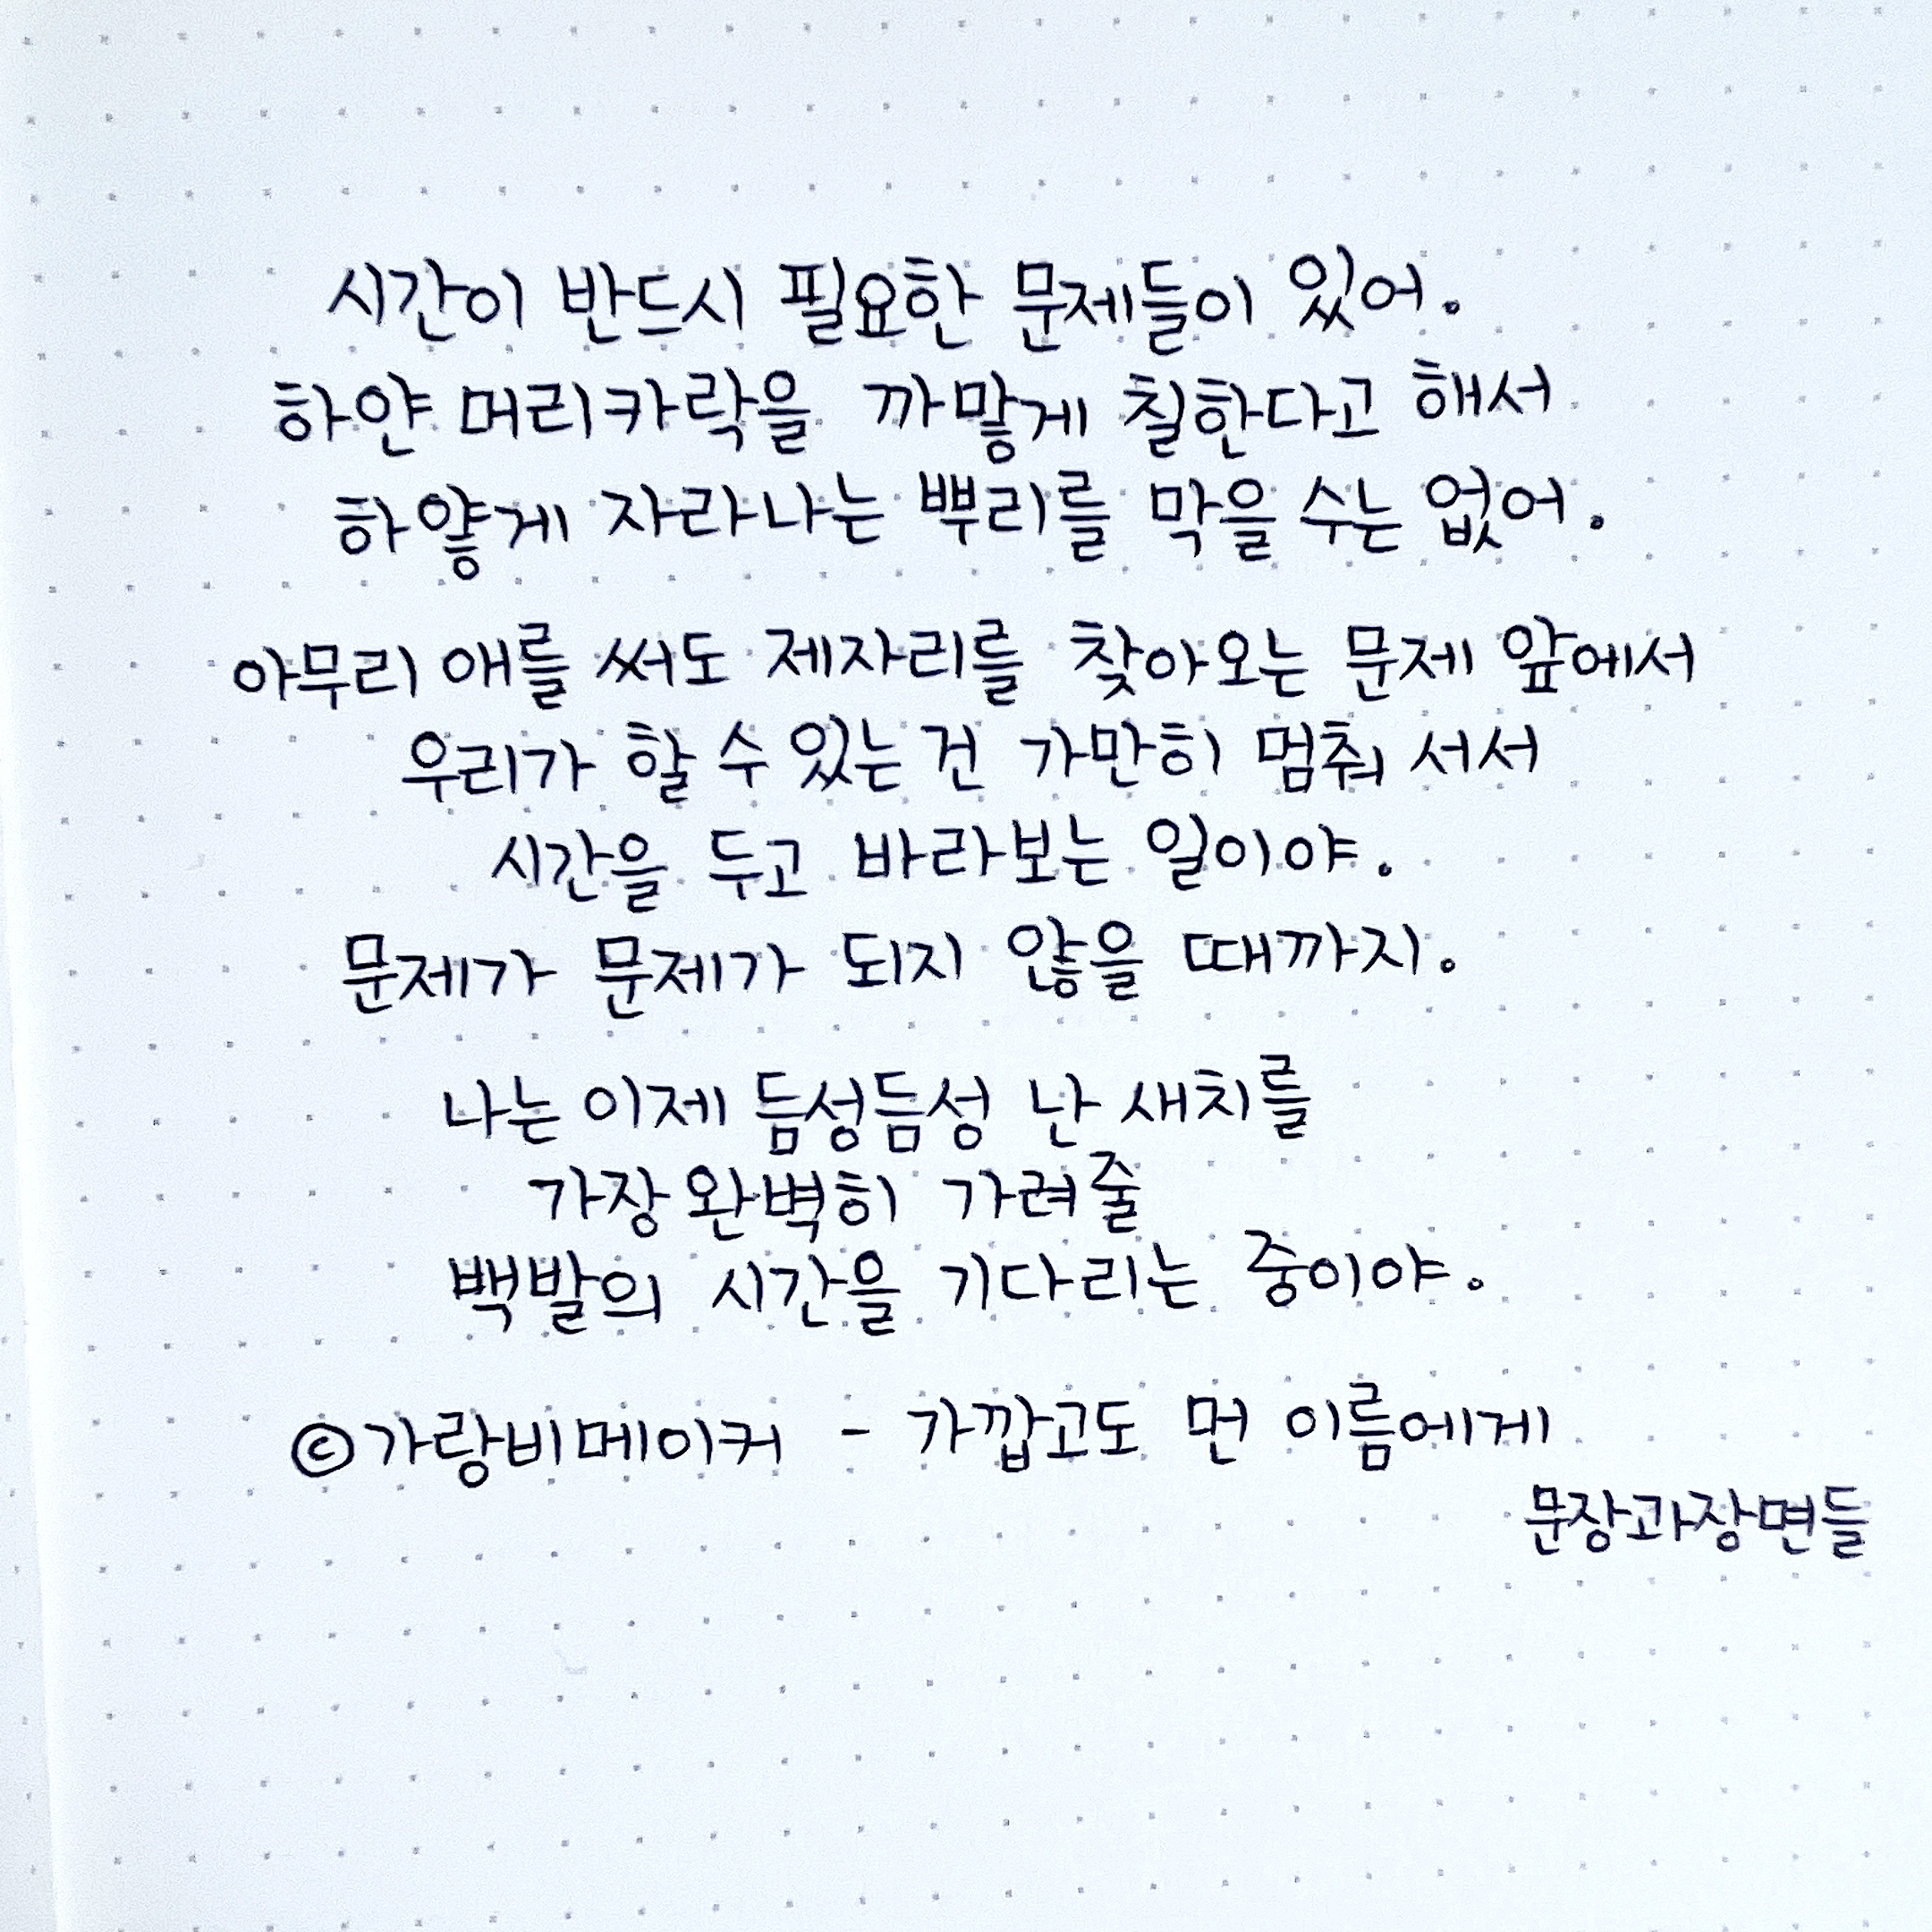 시간이 반드시 필요한 문제들이 있어.
하얀 머리카락을 까맣게 칠한다고 해서
하얗게 자라나는 뿌리를 막을 수는 없어.
아무리 애를 써도 제자리를 찾아오는 문제 앞에서
우리가 할 수 있는 건 가만히 멈춰 서서
시간을 두고 바라보는 일이야.
문제가 문제가 되지 않을 때까지.
나는 이제 듬성듬성 난 새치를
가장 완벽히 가려줄
백발의 시간을 기다리는 중이야.
©가랑비메이커 - 가깝고도 먼 이름에게
문장과장면들